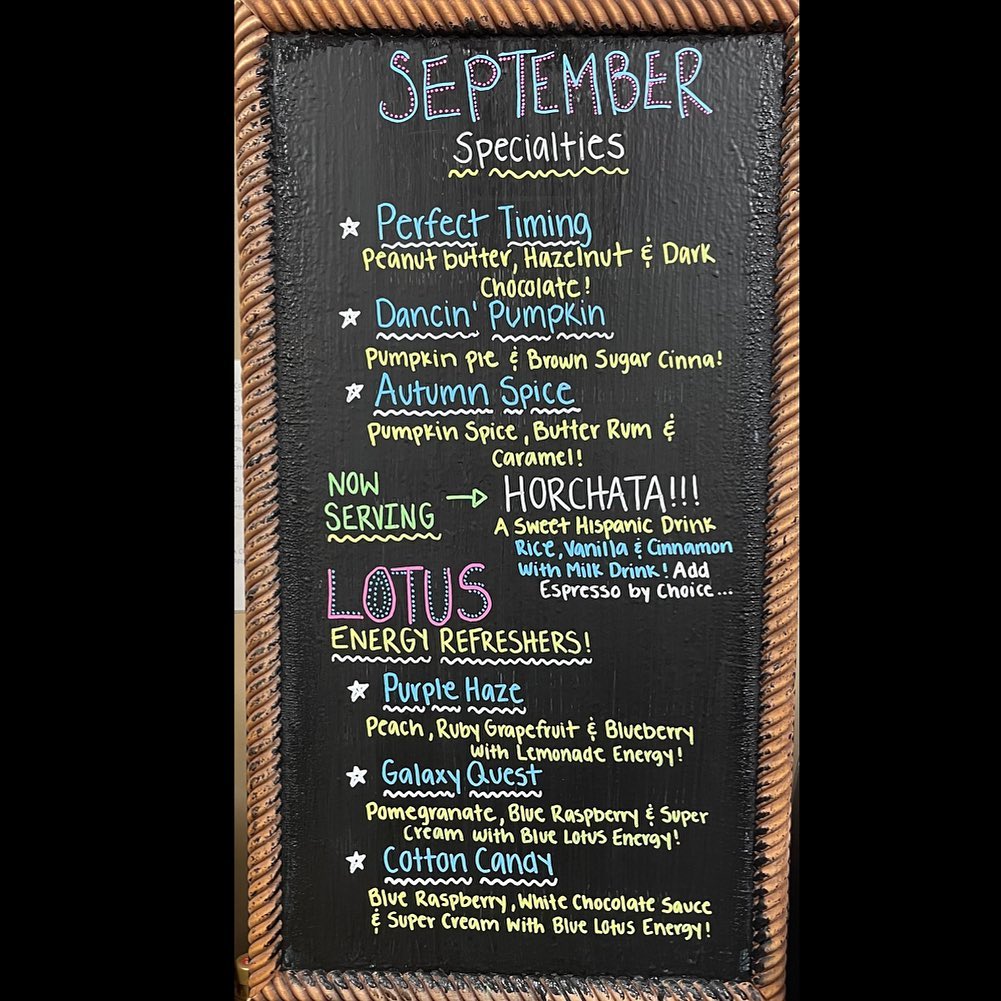 SEPTEMBER
Specialties
Perfect Timing
Peanut butter, Hazelnut & Dark
Chocolate!
Dancin' Pumpkin
Pumpkin Pie & Brown Sugar Cinna!
Autumn Spice
Pumpkin Spice, Butter Rum &
Caramel!
NOW
SERVING → HORCHATA!!!
A Sweet Hispanic Drink
Rice, Vanilla & Cinnamon
With Milk Drink! Add
Espresso by Choice...
LOTUS
ENERGY REFRESHERS!
Purple Haze
Peach, Ruby Grapefruit & Blueberry
With Lemonade Energy!
Galaxy Quest
Pomegranate, Blue Raspberry & Super
Cream with Blue Lotus Energy!
Cotton Candy
Blue Raspberry, White Chocolate Sauce
& Super Cream With Blue Lotus Energy!